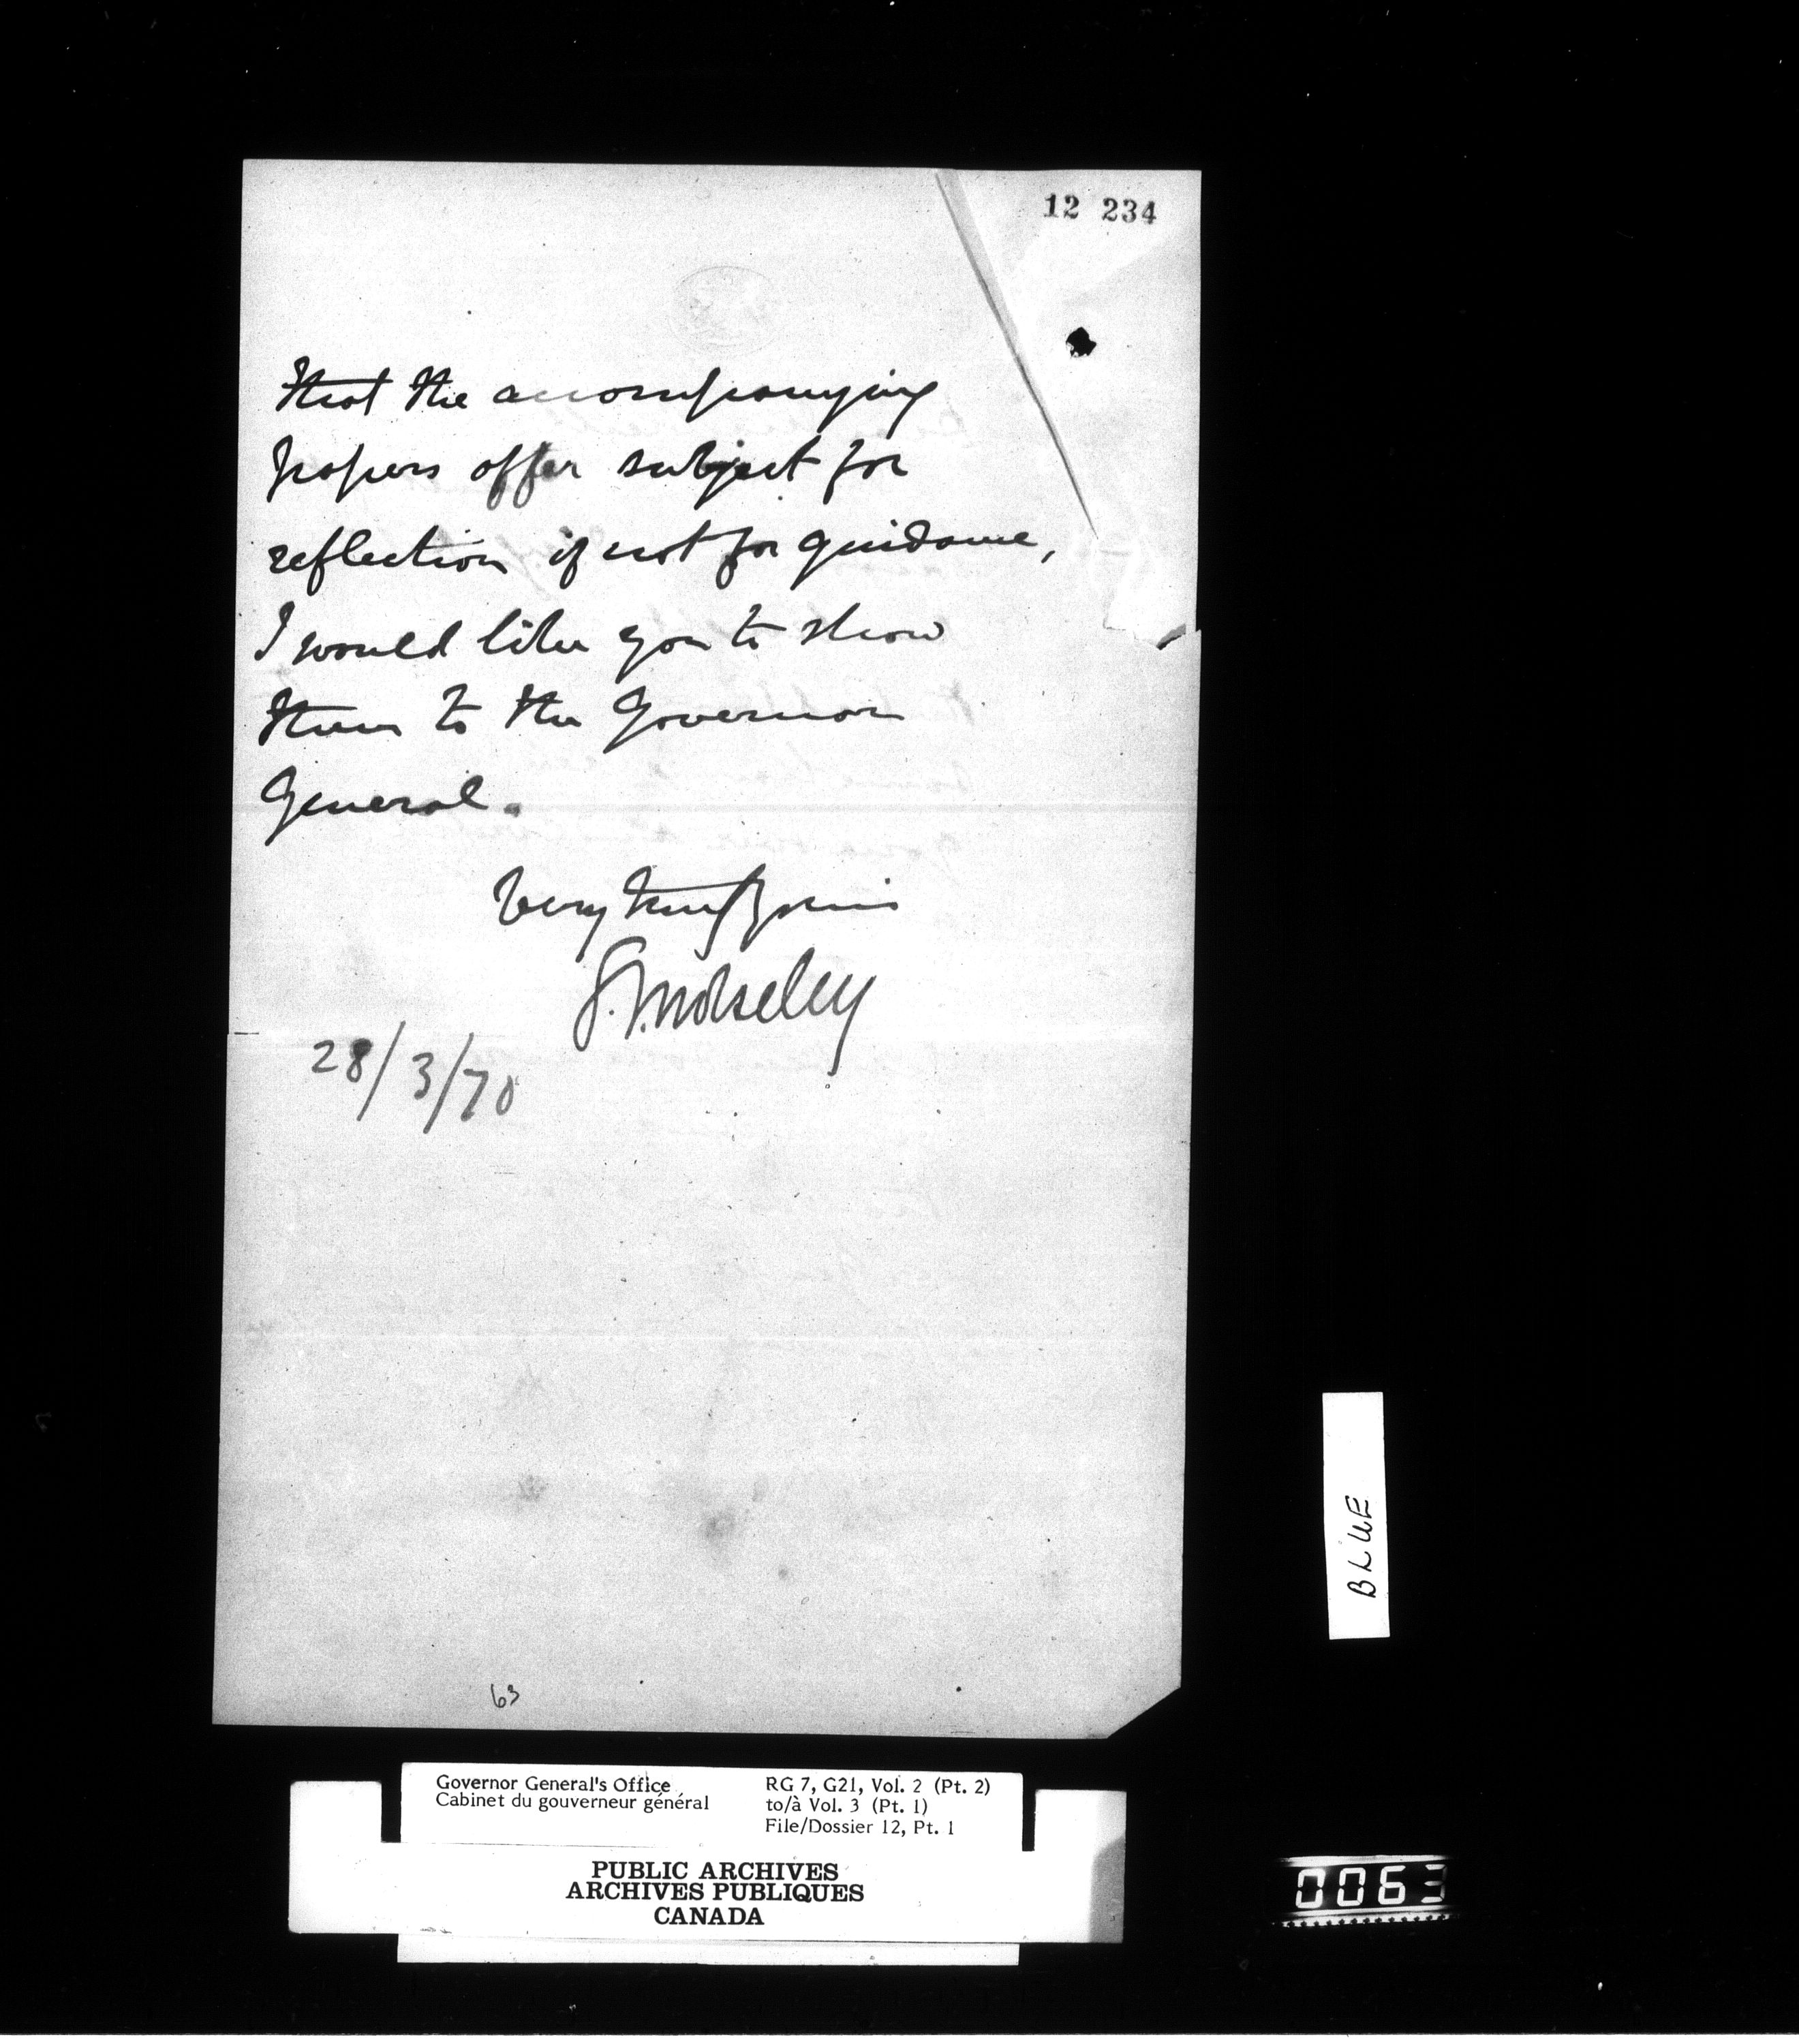 12 234
that the accompanying
papers offer subject for
reflection if not for guidance,
I would like you to show
them to the Governor
General.
Very truly yours
G. J. Wolseley
28/3/70
63
BLUE
Governor General's Office
Cabinet du gouverneur général
RG 7, G21, Vol. 2 (Pt. 2)
to/à Vol. 3 (Pt. 1)
File/Dossier 12, Pt. 1
PUBLIC ARCHIVES
ARCHIVES PUBLIQUES
CANADA
0063